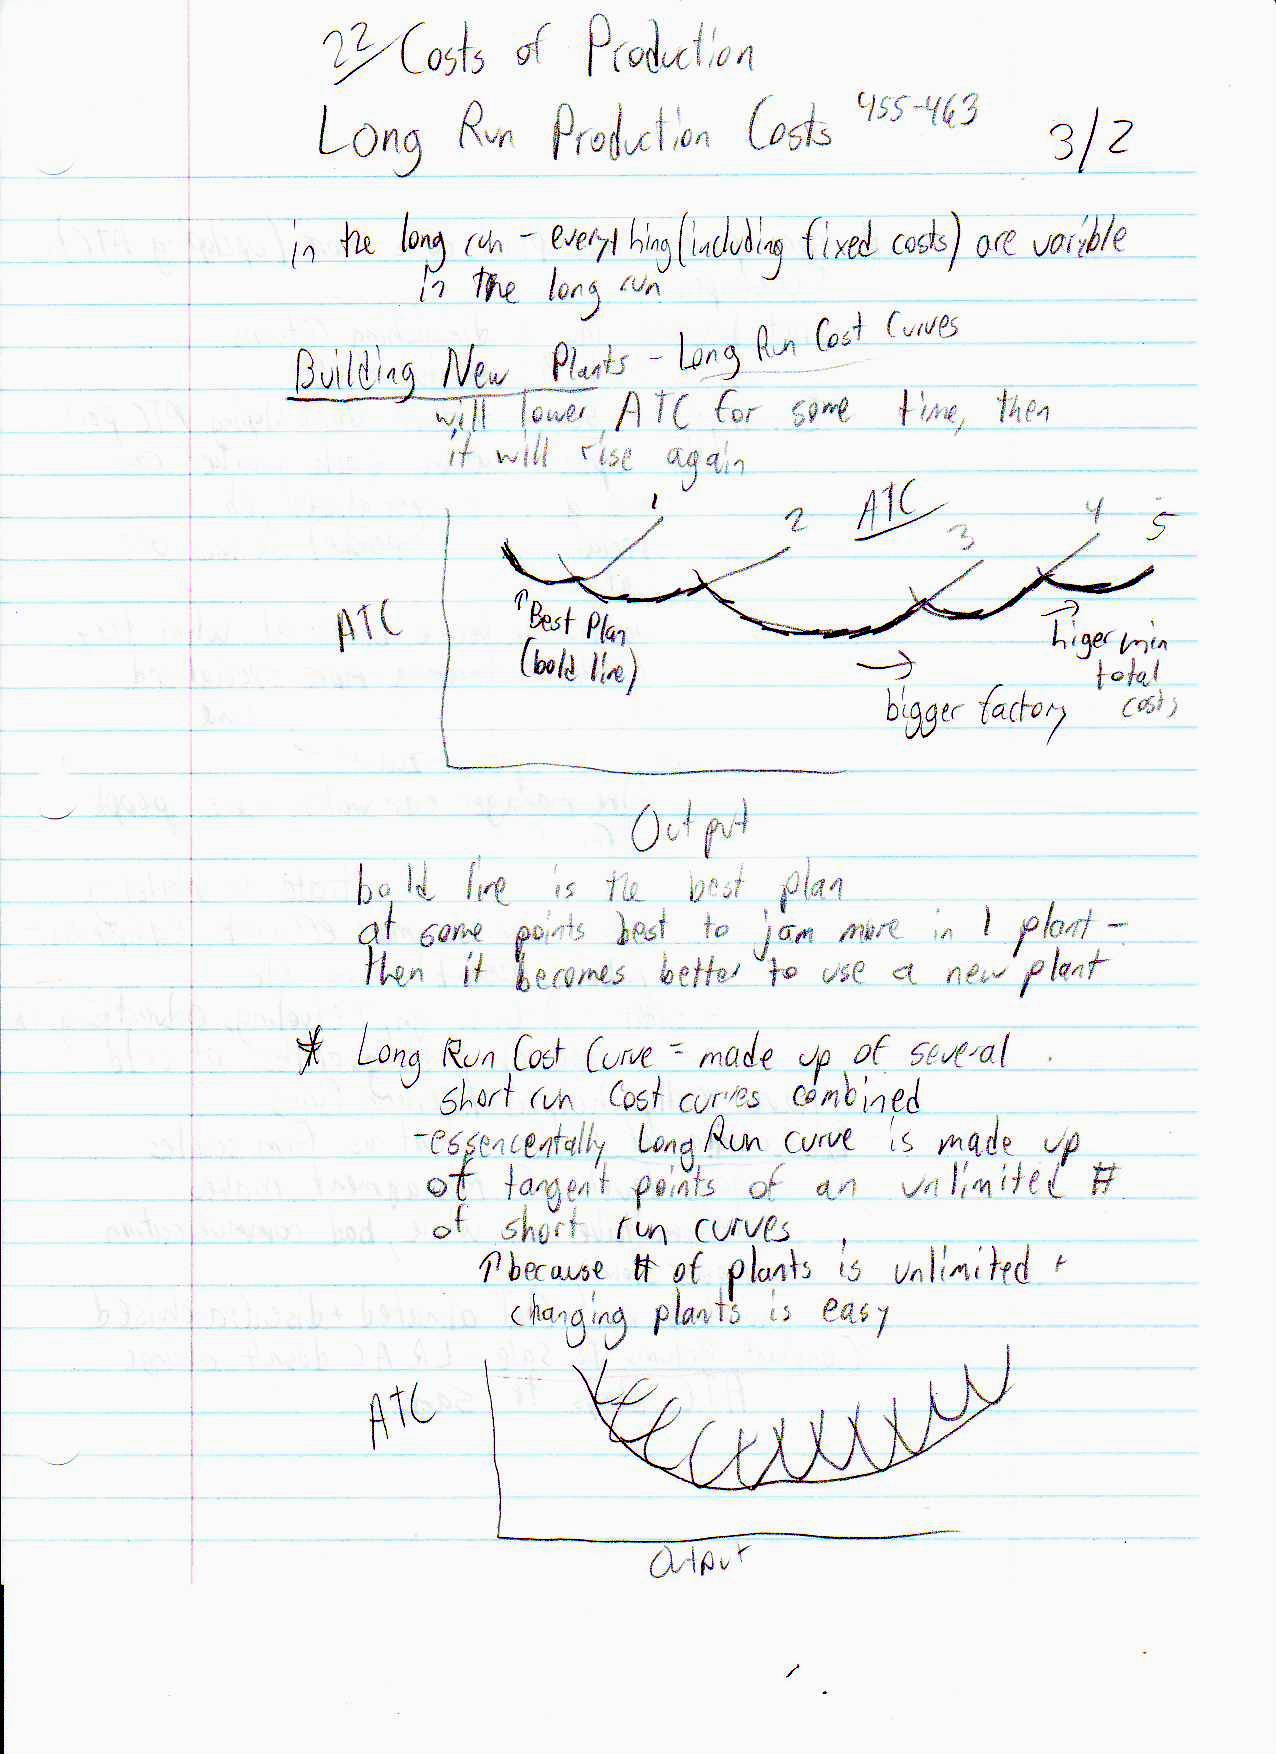 22 Costs of Production
Long Run Production Costs 455-463
3/2
in the long run - everything (including fixed costs) are varible
in the long run
Building New Plants - Long Run Cost Curves
will lower ATC for some time, then
it will rise again
1 2 ATC 3 4 5
ATC
↑Best Plan
(bold line)
→
bigger factory
→
higer min
total
costs
Output
bold line is the best plan
at some points best to jam more in 1 plant -
then it becomes better to use a new plant
* Long Run Cost Curve = made up of several
short run cost curves combined
-essencentally Long Run curve is made up
of tangent points of an unlimited #
of short run curves
↑ because # of plants is unlimited +
changing plants is easy
ATC
Output